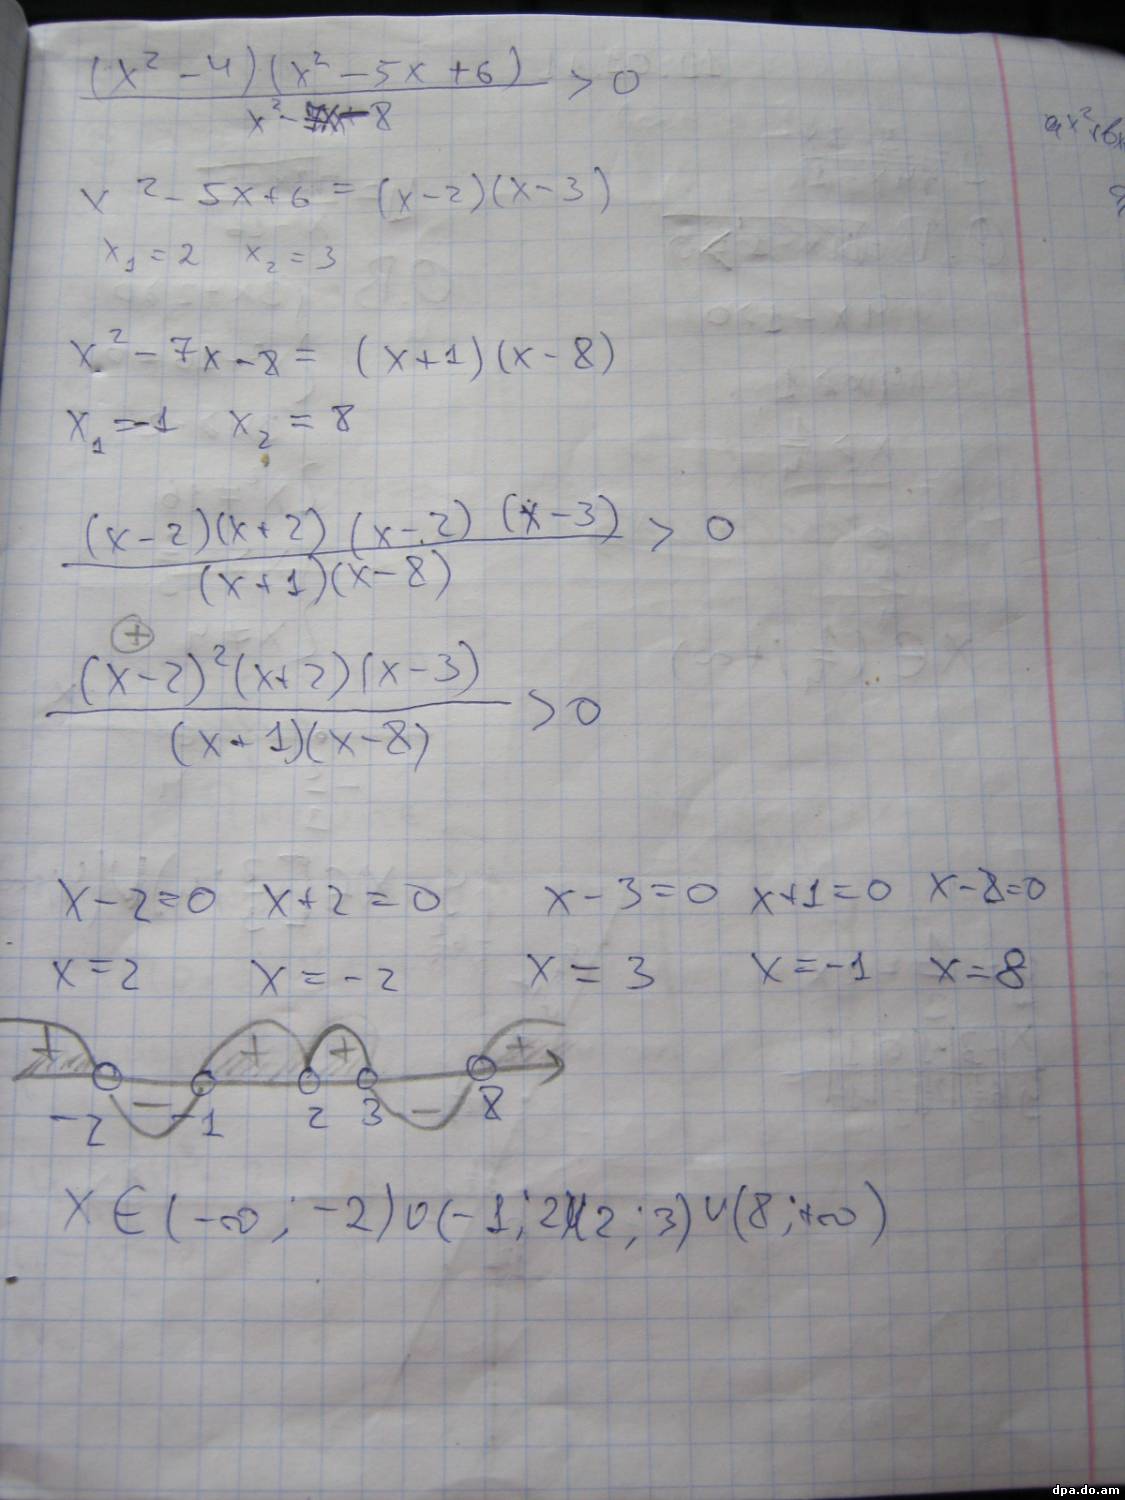 (x² - 4)(x² - 5x + 6) / x² - 7x - 8 > 0
ax² + bx
x² - 5x + 6 = (x-2)(x-3)
x₁ = 2 x₂ = 3
x² - 7x - 8 = (x+1)(x-8)
x₁ = -1 x₂ = 8
(x-2)(x+2)(x-2)(x-3) / (x+1)(x-8) > 0
+
(x-2)²(x+2)(x-3) / (x+1)(x-8) > 0
x-2=0 x+2=0 x-3=0 x+1=0 x-8=0
x=2 x=-2 x=3 x=-1 x=8
+ - + + - +
-2 -1 2 3 8
x ∈ (-∞; -2) ∪ (-1; 2) ∪ (2; 3) ∪ (8; +∞)
dpa.do.am